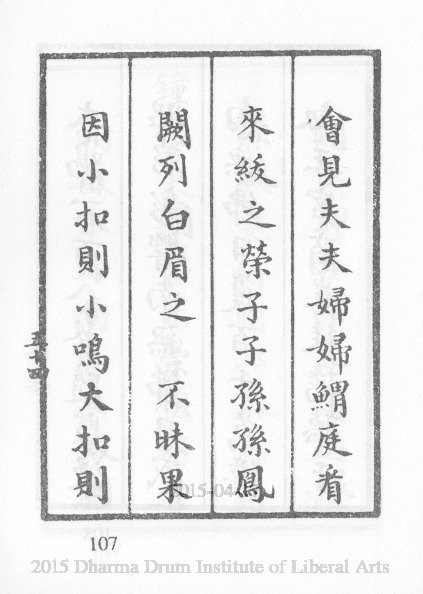 會見夫夫婦婦鯝庭看
來綵之榮子子孫孫鳳
闕列白眉之　不昧果
因小扣則小鳴大扣則
五十四
107
2015 Dharma Drum Institute of Liberal Arts